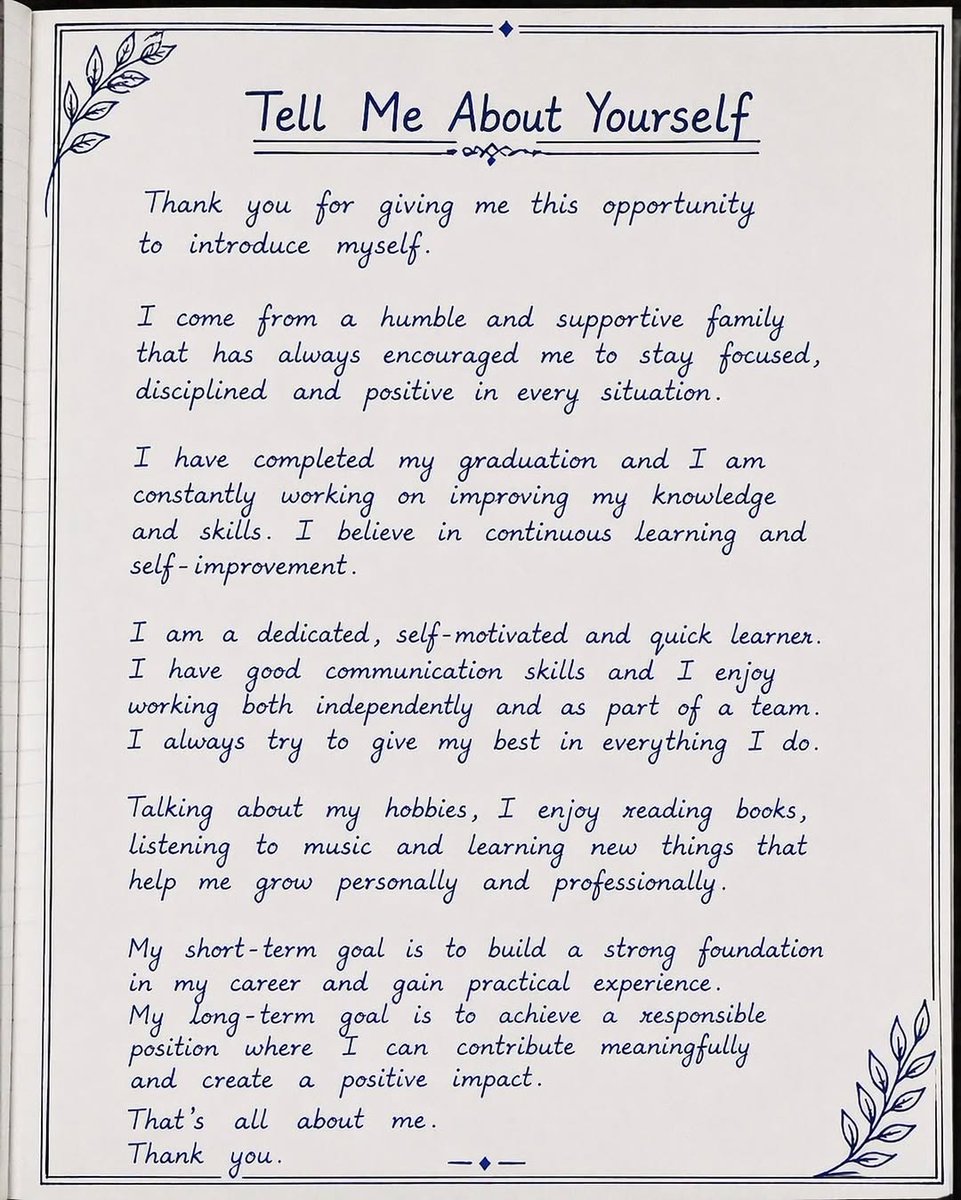 Tell Me About Yourself
Thank you for giving me this opportunity
to introduce myself.
I come from a humble and supportive family
that has always encouraged me to stay focused,
disciplined and positive in every situation.
I have completed my graduation and I am
constantly working on improving my knowledge
and skills. I believe in continuous learning and
self-improvement.
I am a dedicated, self-motivated and quick learner.
I have good communication skills and I enjoy
working both independently and as part of a team.
I always try to give my best in everything I do.
Talking about my hobbies, I enjoy reading books,
listening to music and learning new things that
help me grow personally and professionally.
My short-term goal is to build a strong foundation
in my career and gain practical experience.
My long-term goal is to achieve a responsible
position where I can contribute meaningfully
and create a positive impact.
That's all about me.
Thank you.